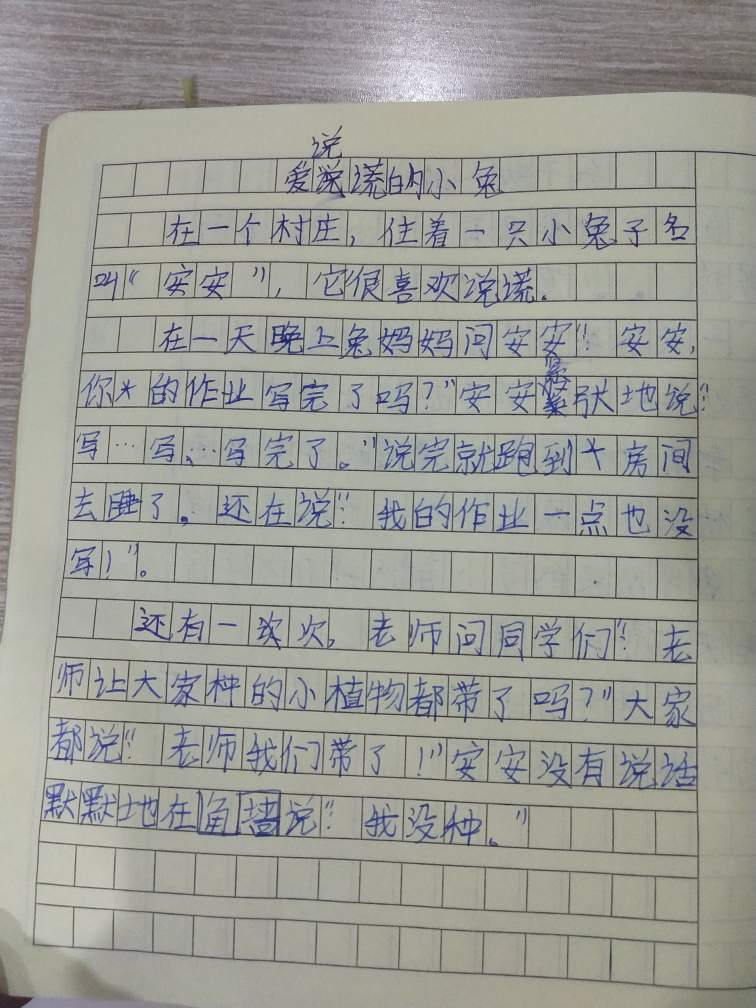 说
爱说谎的小兔
在一个村庄，住着一只小兔子名
叫“安安”，它很喜欢说谎.
在一天晚上兔妈妈问安安：“安安，
你*的作业写完了吗？”安安紧张地说：“
写…写…写完了。”说完就跑到个房间
去睡了。还在说：“我的作业一点也没
写！”。
还有一次次，老师问同学们：“老
师让大家种的小植物都带了吗？”大家
都说：“老师我们带了！”安安没有说话
默默地在角墙说：“我没种。”